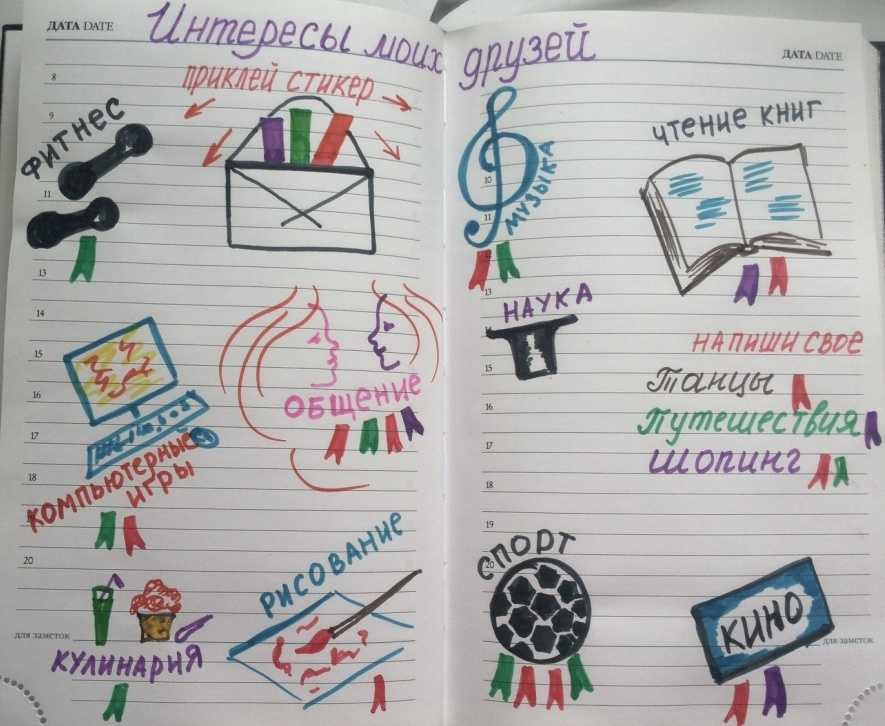 ДАТА DATE
Интересы моих друзей
ДАТА DATE
ПРИКЛЕЙ СТИКЕР
ФИТНЕС
8
9
11
13
14
15
16
17
18
20
ОБЩЕНИЕ
КОМПЬЮТЕРНЫЕ
ИГРЫ
РИСОВАНИЕ
для заметок
КУЛИНАРИЯ
МУЗЫКА
ЧТЕНИЕ КНИГ
10
11
12
13
НАУКА
15
16
17
18
19
20
НАПИШИ СВОЕ
Танцы
Путешествия
Шопинг
СПОРТ
КИНО
для заметок